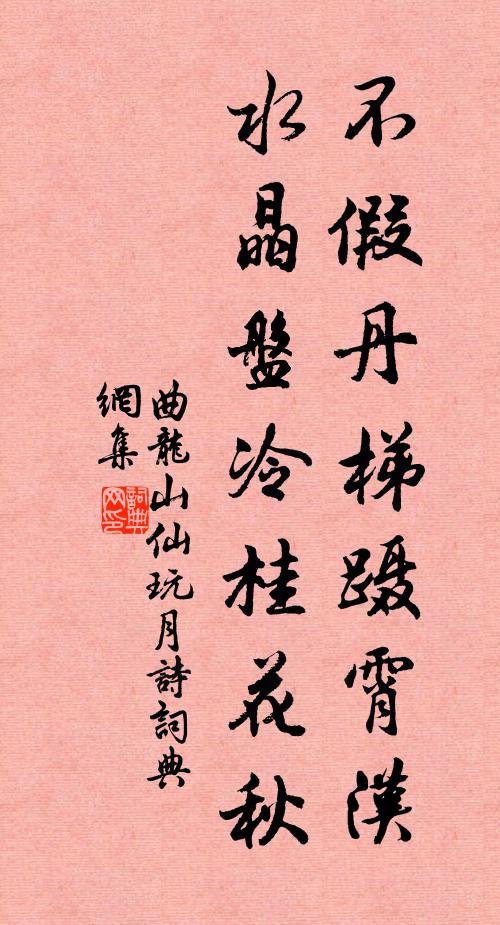 不假丹梯蹑霄漢
水晶盤冷桂花秋
曲龍山仙玩月詩詞典
網集
詞典
网印